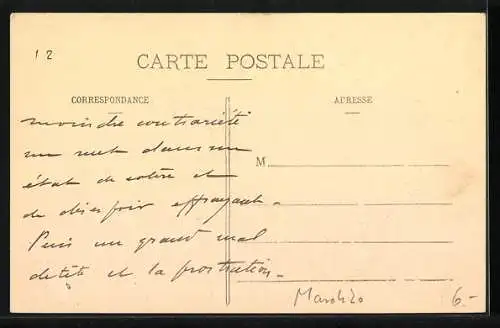 12
CARTE POSTALE
CORRESPONDANCE
ADRESSE
moindre contrariété
me met dans un
état de colère et
de désespoir effrayant.
Puis un grand mal
de tête et la prostration.
M
6.-